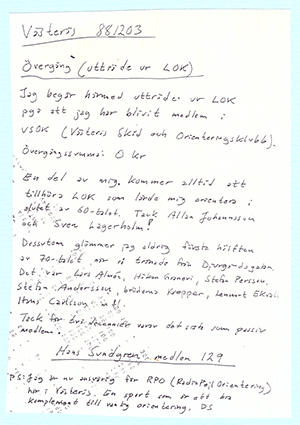 Västerås 881203
Övergång (utträde ur LOK)
Jag begär härmed utträde ur LOK
pga att jag har blivit medlem i
VSOK (Västerås Skid och Orienteringsklubb).
Övergångssumma: 0 kr
En del av mig kommer alltid att
tillhöra LOK som lärde mig orientera i
slutet av 60-talet. Tack Allan Johansson
och Sven Lagerholm!
Dessutom glömmer jag aldrig första hälften
av 70-talet när vi tränade från Djurgårdsgatan.
Det var Lars Almén, Håkan Granevi, Stefan Persson,
Stefan Andersson, bröderna Knapper, Lennart
Hans Carlsson m fl.
Tack för två decennier varav det sista som passiv
medlem.
Hans Sundgren, medlem 129
PS: Jag är nu ansvarig för RPO (RadioPejlOrientering)
här i Västerås. En sport som är ett bra
komplement till vanlig orientering. DS